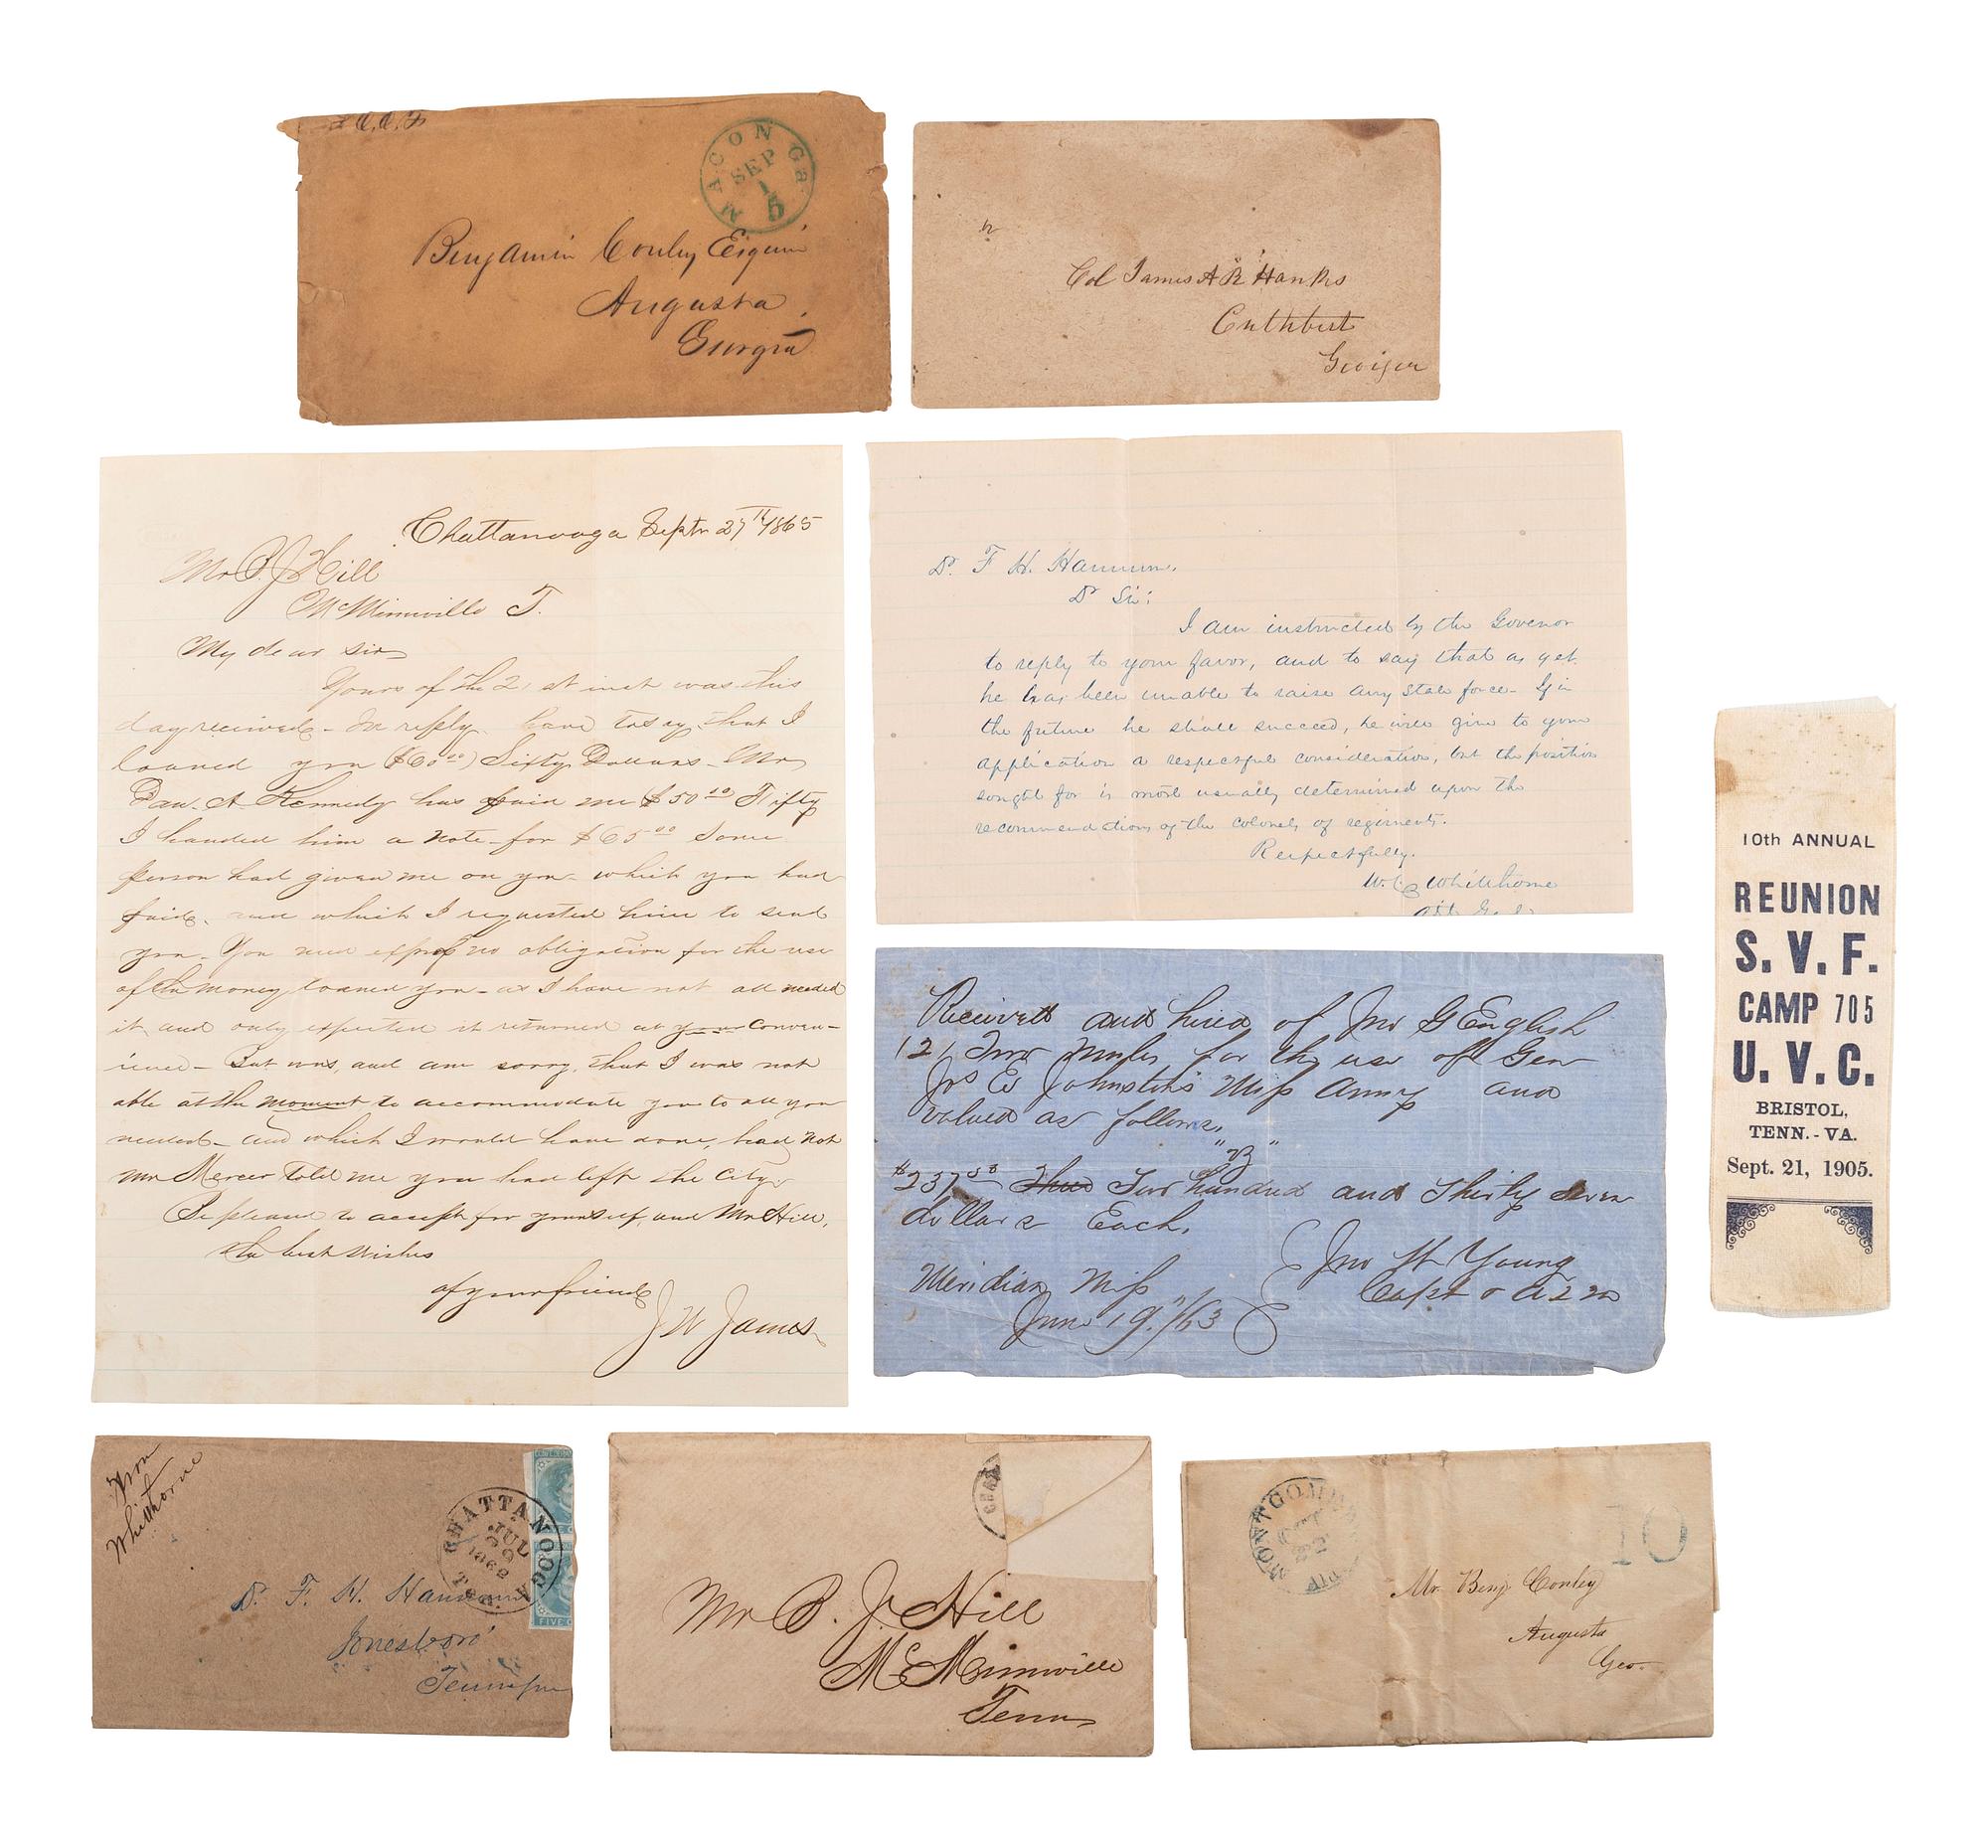 C.C.F
MACON Ga
SEP
1
5
Benjamin Conley Esquire
Augusta
Georgia
Col James A R Hanks
Cuthbert
Georgia
Chattanooga Septr 27th 1865
Mr B. J. Hill
McMinnville T.
My dear sir
Yours of the 21st inst was this
day received - In reply, have to say, that I
loaned you ($60.00) Sixty Dollars - Mr
Dan. A. Kennedy has paid me $50.10 Fifty
I handed him a note for $65.00 Some
person had given me on you - which you had
paid, and which I requested him to send
you - You need express no obligation for the use
of the money loaned you - as I have not all needed
it, and only expected it returned at your conven-
ience - But was, and am sorry, that I was not
able at the moment to accommodate you to all you
needed - and which I would have done, had not
Mr Mercer told me you had left the City
Be pleased to accept for yourself, and Mrs Hill,
the best wishes
of your friend
J W James
D. F. H. Hannum.
Dr Sir:
I am instructed by the Govenor
to reply to your favor, and to say that as yet
he has been unable to raise any State force - If in
the future he shall succeed, he will give to your
application a respectful consideration, but the position
sought for is most usually determined upon the
recommendation of the colonels of regiments.
Respectfully.
W. C. Whitthorne
Receivett and hired of Jno G English
(2) Two Mules for the use of Gen
Jos E Johnston's Miss Army and
valued as follows.
$237 Thre Two hundred and Thirty Seven
dollars Each.
Jno W Young
Capt & A 2 M
Meridian Miss
June 19"/63
10th ANNUAL
REUNION
S. V. F.
CAMP 705
U. V. C.
BRISTOL,
TENN. - VA.
Sept. 21, 1905.
From
Whitthorne
CHATTANOOGA
JUL
1862
TEN
FIVE C
D. F. H. Hannum
Jonesboro'
Tennessee
CHAT
Mr B. J. Hill
McMinnville
Tenn
MONTGOMERY
OCT
22
Ala
10
Mr. Benj Conley
Augusta
Geo.